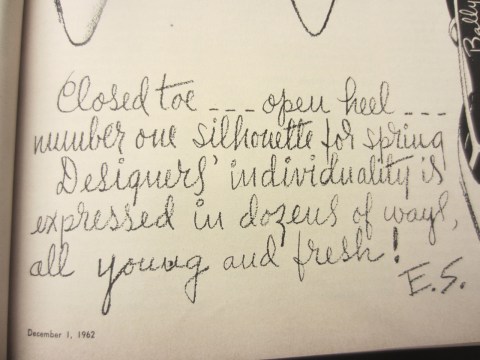 Bally
Closed toe --- open heel ---
number one silhouette for spring
Designers' individuality is
expressed in dozens of ways,
all young and fresh!
E.S.
December 1, 1962